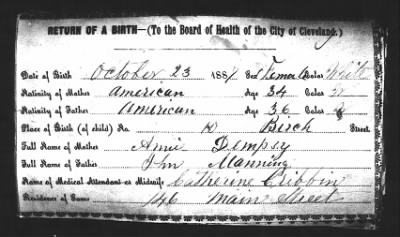 RETURN OF A BIRTH—(To the Board of Health of the City of Cleveland.)
Date of Birth October 23 188 Sex Female Color White
Nativity of Mother American Age 34 Color
Nativity of Father American Age 36 Color
Place of Birth (of child) No. Birch Street.
Full Name of Mother Annie Dempsy
Full Name of Father Jhn Manning
Name of Medical Attendant or Midwife Catherine Cribbin
Residence of Same 146 Main Street